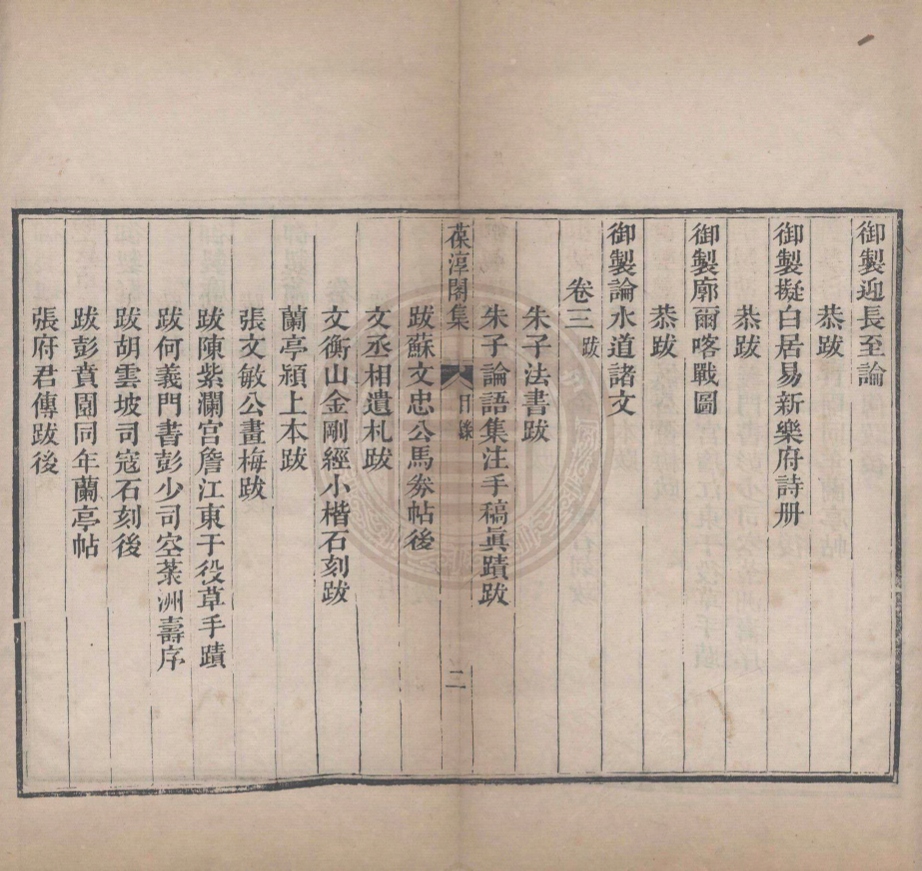 御製迎長至論
恭跋
御製擬白居易新樂府詩册
恭跋
御製廓爾喀戰圖
恭跋
御製論水道諸文
卷三 跋
朱子法書跋
朱子論語集注手稿眞蹟跋
葆淳閣集 目錄 二
跋蘇文忠公馬劵帖後
文丞相遺札跋
文衡山金剛經小楷石刻跋
蘭亭潁上本跋
張文敏公畫梅跋
跋陳紫瀾宫詹江東于役草手蹟
跋何義門書彭少司空菜洲壽序
跋胡雲坡司寇石刻後
跋彭賁園同年蘭亭帖
張府君傳跋後